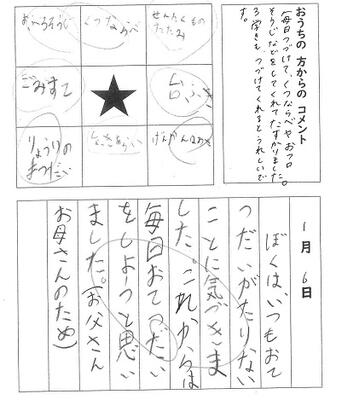 おふろそうじ
くつならべ
せんたくもの
たたみ
ごみすて
台ふき
りょうりの
おてつだい
げんかんはき
おうちの 方からの コメント
毎日つづけて、くつならべやおフロ
そうじなどをしてくれてたすかりました。
３学きも、つづけてくれるとうれしいで
す。
１月 ６日
ぼくは、いつもおて
つだいがたりない
ことに気づきま
した。これからは
毎日おてつだい
をしよーっと思い
ました。(お父さん
お母さんのため)